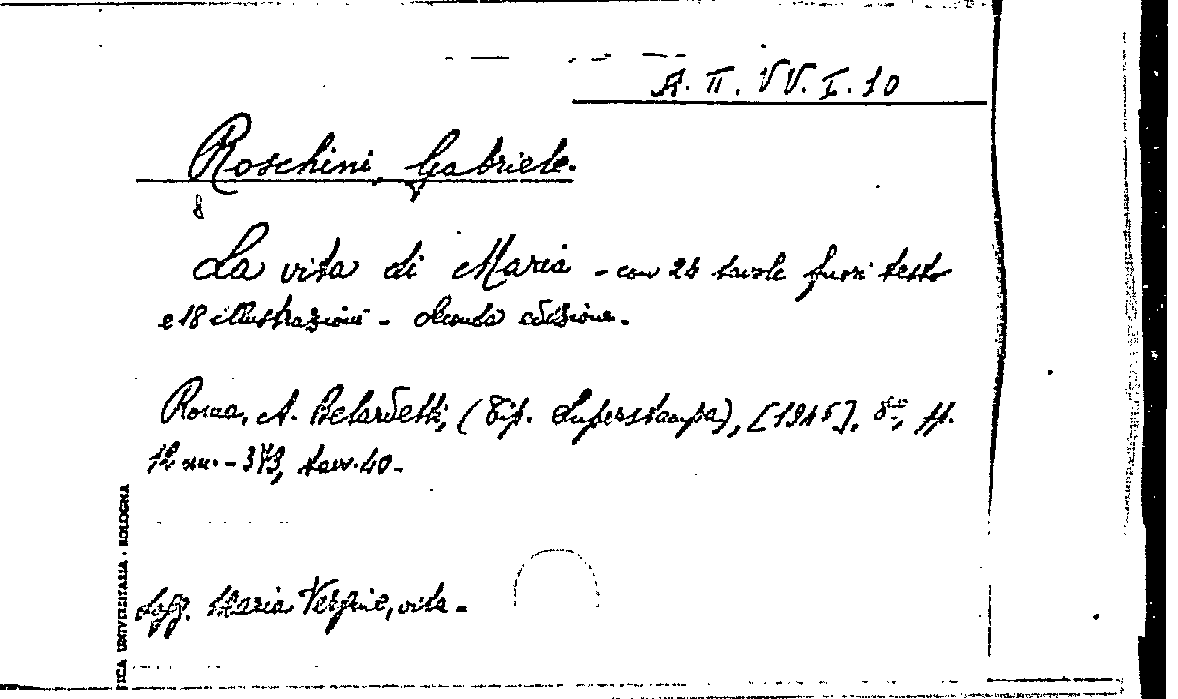 A. II. VV. I. 10
Roschini, Gabriele.
8
La vita di Maria - con 24 tavole fuori testo
e 18 illustrazioni - Seconda edizione.
Roma, A. Belardetti, (Tip. Superstampa), [1945]. 8°, pp.
12 nn. - 373, tavv. 40.
Sogg. Maria Vergine, vita -
TICA UNIVERSITARIA - BOLOGNA